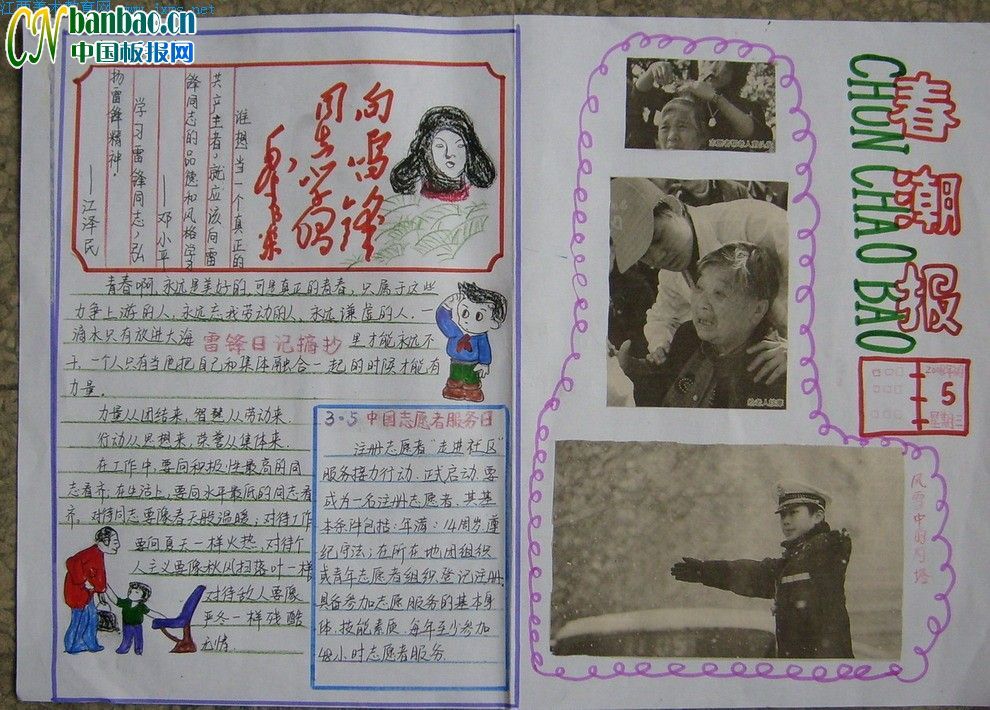 江西美术教育网 www.jxms.net
CN banbao.cn
中国板报网
向雷锋
同志学习
毛泽东
谁想当一个真正的
共产主者，就应该向雷
锋同志的品德和风格学习
——邓小平
学习雷锋同志，弘
扬雷锋精神
——江泽民
青春啊，永远是美好的，可是真正的青春，只属于这些
力争上游的人，永远忘我劳动的人，永远谦虚的人．一
滴水只有放进大海
里才能永远不
干，一个人只有当他把自己和集体融合一起的时候才能有
力量．
雷锋日记摘抄
力量从团结来，智慧从劳动来．
行动从思想来，荣誉从集体来．
在工作中，要向积极性最高的同
志看齐，在生活上，要向水平最低的同志看
齐，对待同志要像春天般温暖，对待工作
要向夏天一样火热，对待个
人主义要像秋风扫落叶一样
对待敌人要像
严冬一样残酷
无情
3·5中国志愿者服务日
注册志愿者“走进社区”
服务接力行动．正式启动．要
成为一名注册志愿者，其基
本条件包括：年满：14周岁，遵
纪守法；在所在地团组织
或青年志愿者组织登记注册
具备参加志愿服务的基本身
体、技能素质．每年至少参加
48小时志愿者服务．
春潮报
CHUN CHAO BAO
5
星期三
给老人按摩
风雪中的丹塔